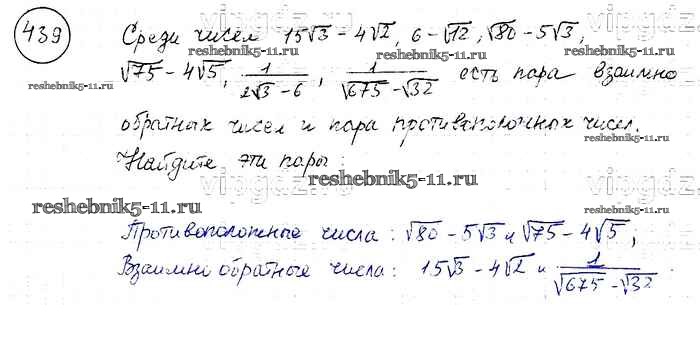 439
Среди чисел 15√3 − 4√2, 6 − √12, √80 − 5√3,
√75 − 4√5, 1/(2√3 − 6), 1/(√675 − √32) есть пара взаимно
обратных чисел и пара противоположных чисел.
Найдите эти пары:
Противоположные числа: √80 − 5√3 и √75 − 4√5,
Взаимно обратные числа: 15√3 − 4√2 и 1/(√675 − √32)
vipgdz
reshebnik5-11.ru
reshebnik5-11.ru
reshebnik5-11.ru
reshebnik5-11.ru
reshebnik5-11.ru
vipgdz
reshebnik5-11.ru
reshebnik5-11.ru